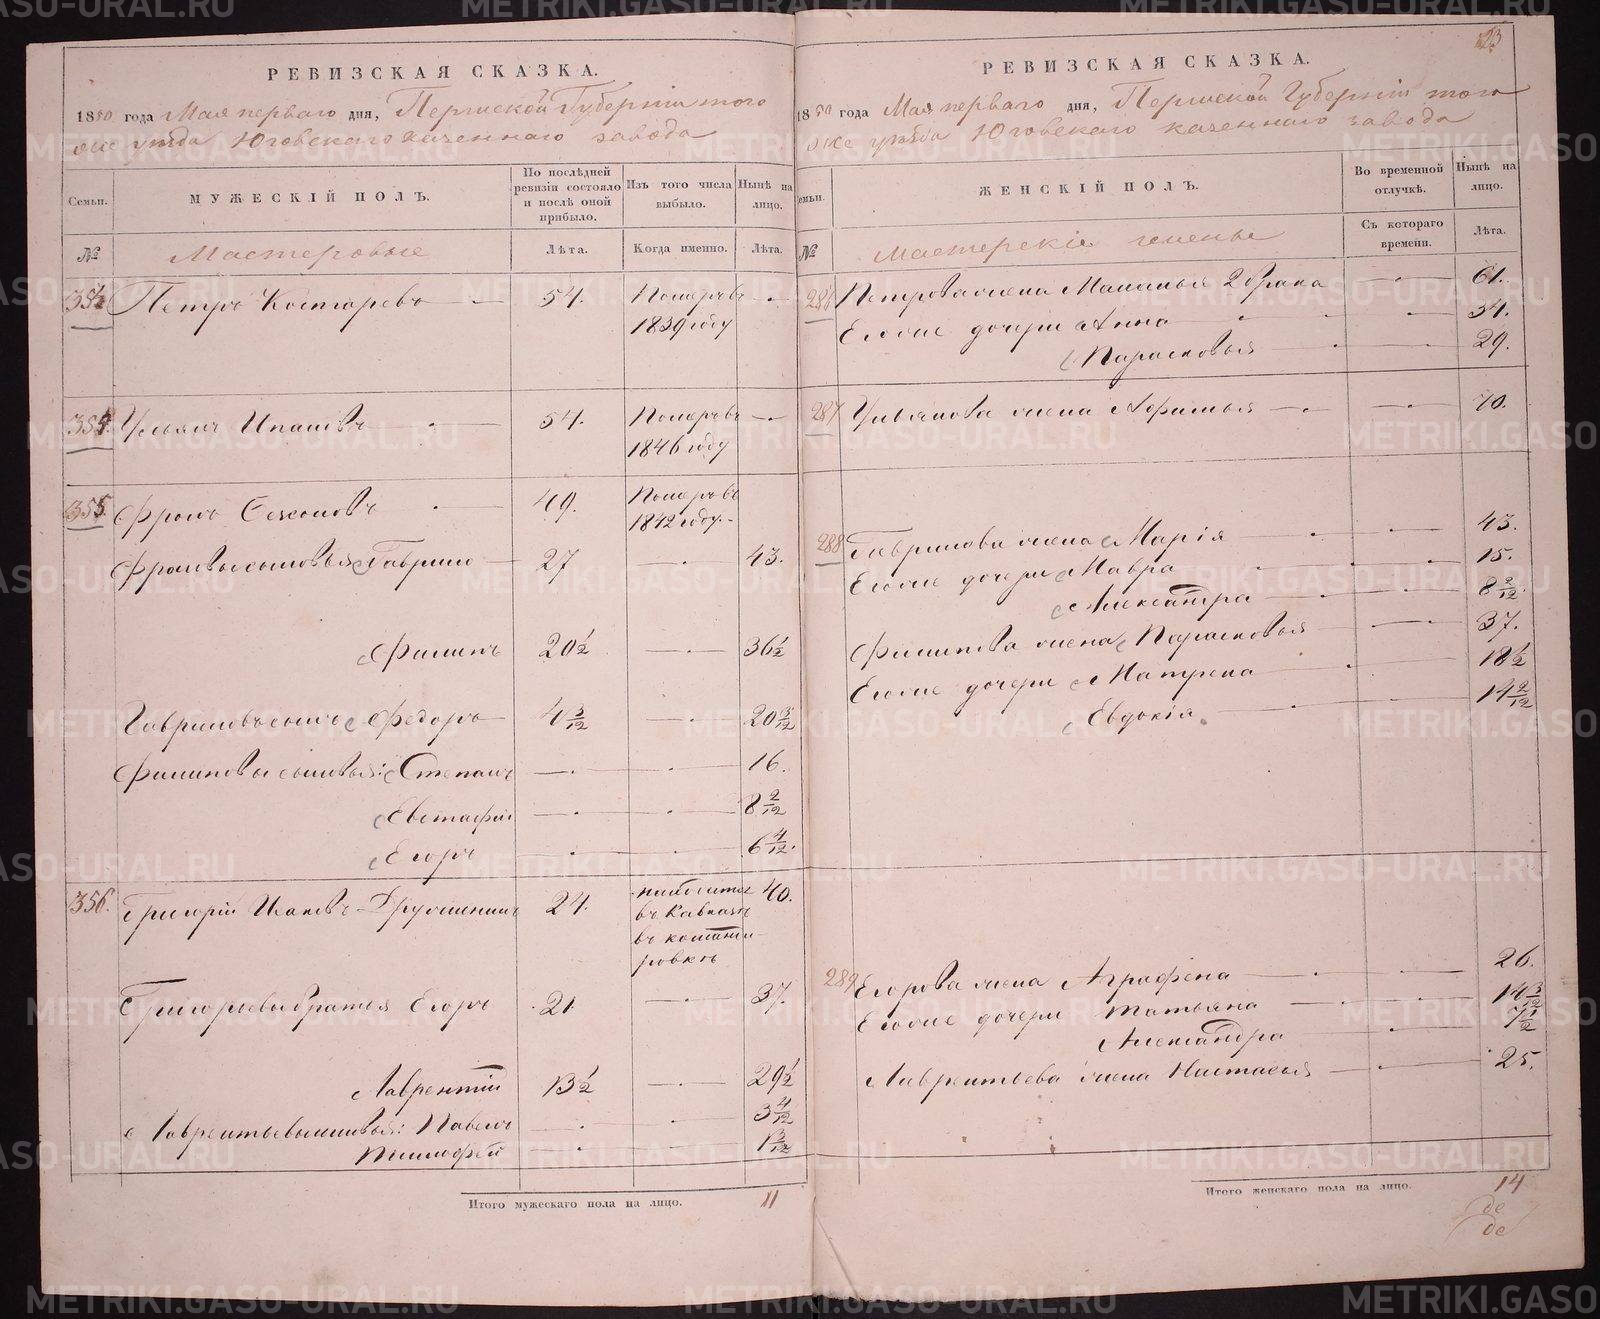 РЕВИЗСКАЯ СКАЗКА.
1850 года Мая перваго дня, Пермской Губернiи того
же уѣзда Юговскаго казеннаго завода
Семьи.
МУЖЕСКІЙ ПОЛЪ.
По послѣдней ревизіи состояло и послѣ оной прибыло.
Изъ того числа выбыло.
Нынѣ на лицо.
№
Мастеровые
Лѣта.
Когда именно.
Лѣта.
Петръ Костаревъ 54. Померъ въ
1839 году
354. Ульянъ 54. Померъ въ
1846 году
355 Фролъ 49. Померъ въ
1842 году.
Фроловы сыновья Гаврило 27 43.
Филипъ 20½ 36½
Гавриловъ сынъ Федоръ 4 3/12 20 3/12
Филиповы сыновья: Степанъ 16.
Евстафiй 8 2/12
Егоръ 6 4/12.
356. Григорiй Исаковъ 24. находится 40.
въ Кавказѣ
въ командировкѣ
Григорьевы братья Егоръ 21. 37.
Лаврентiй 13½ 29½
Лаврентьевы сыновья: Павелъ 3 4/12
Тимофей 1 3/12
Итого мужескаго пола на лицо. 11
23
РЕВИЗСКАЯ СКАЗКА.
1850 года Мая перваго дня, Пермской Губернiи того
же уѣзда Юговскаго казеннаго завода
Семьи.
ЖЕНСКІЙ ПОЛЪ.
Во временной отлучкѣ.
Нынѣ на лицо.
№
Мастерскiя жены
Съ котораго времени.
Лѣта.
286 Петрова жена Маланья 61.
Его же дочери Анна 34.
Парасковья 29.
287 Ульянова жена Афимья 70.
288 Гаврилова жена Марiя 43.
Его же дочери Мавра 15.
Александра 8 2/12.
Филипова жена Парасковья 37.
Его же дочери Матрена 18½
Евдокiя 14 2/12
289 Егорова жена Аграфена 26.
Его же дочери Татьяна 14 3/12
Александра
Лаврентьева жена Настасья 25.
Итого женскаго пола на лицо. 14
METRIKI.GASO-URAL.RU